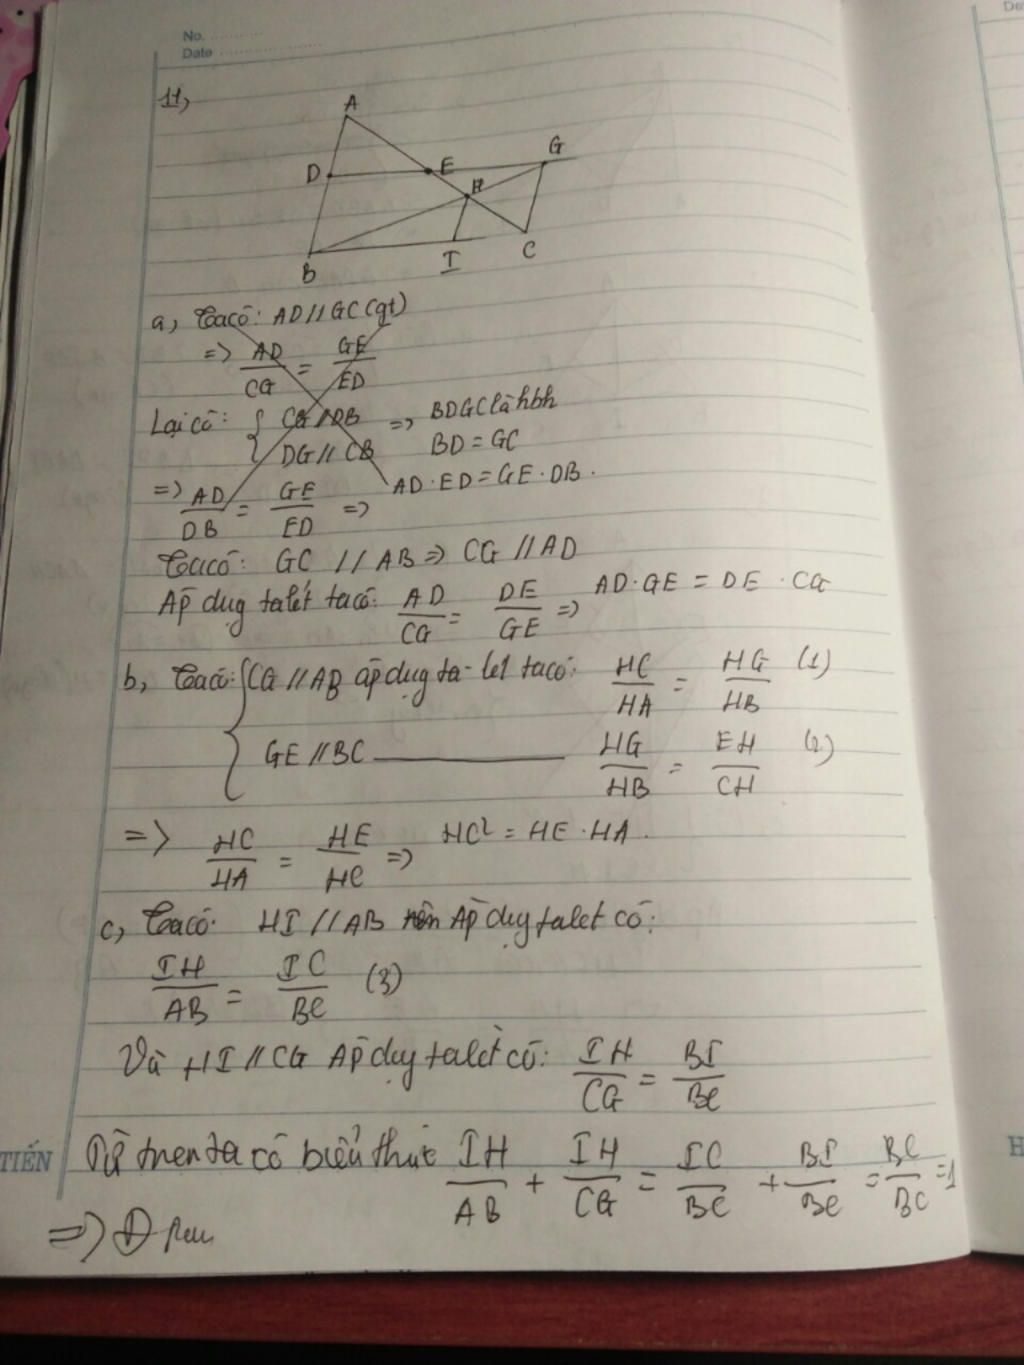 No.
Date
11,
A
D E G
H
B I C
a, Ta có: AD // GC (gt)
=> AD/CG = GE/ED
Lại có: { CG // DB => BDGC là hbh
DG // CB BD = GC
=> AD/DB = GE/ED => AD·ED = GE·DB.
Ta có: GC // AB => CG // AD
Áp dug talét ta có: AD/CG = DE/GE => AD·GE = DE·CG
b, Ta có: { CG // AB áp dụg ta-let ta có: HC/HA = HG/HB (1)
GE // BC ———— HG/HB = EH/CH (2)
=> HC/HA = HE/HC => HC² = HE·HA.
c, Ta có: HI // AB nên Áp dug talet có:
IH/AB = IC/BC (3)
Và HI // CG Áp dug talet có: IH/CG = BI/BC
TIẾN
Từ tren ta có biểu thức IH/AB + IH/CG = IC/BC + BI/BC = BC/BC = 1
=> Đpcm
H